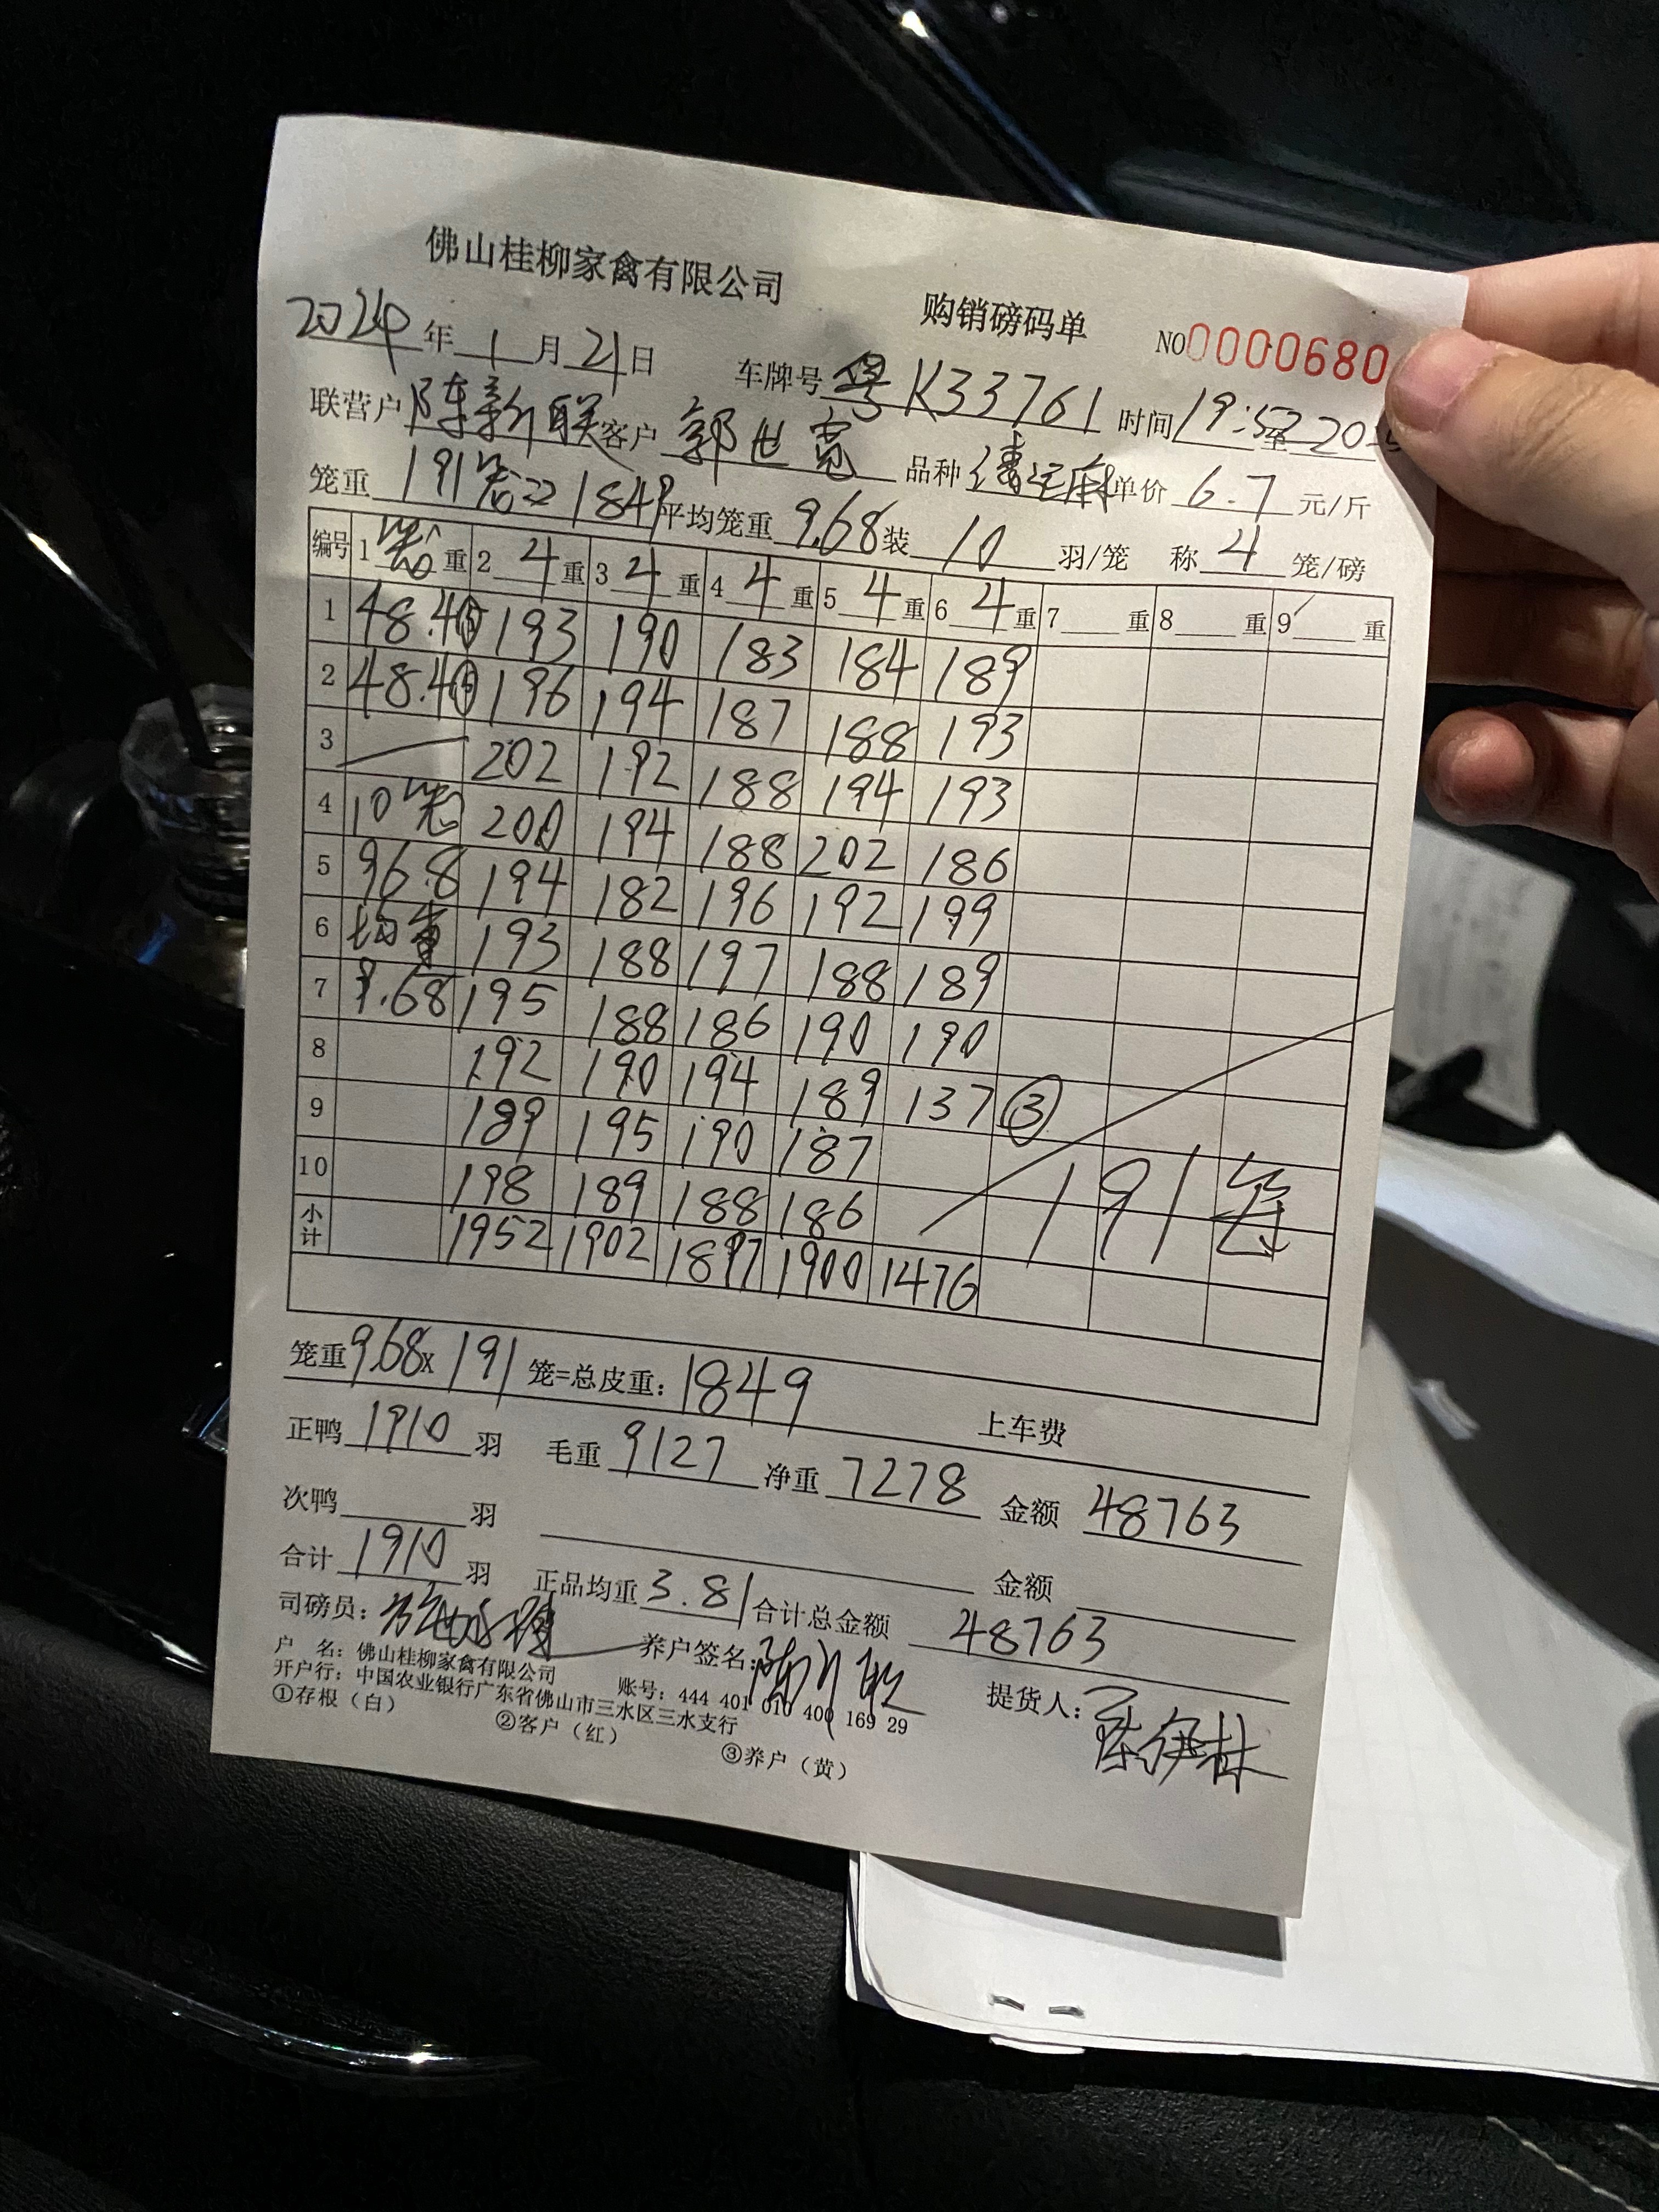 佛山桂柳家禽有限公司 购销磅码单 NO 0000680
2024年1月21日 车牌号 粤K33761 时间 19:52至20:
联营户 陈新联 客户 郭世宽 品种 单价 6.7 元/斤
笼重 191笼=1849 平均笼重 9.68 装 10 羽/笼 称 4 笼/磅
编号 1 笼 重 2 4 重 3 4 重 4 4 重 5 4 重 6 4 重 7 重 8 重 9 重
1 48.4⑤ 193 190 183 184 189
2 48.4⑤ 196 194 187 188 193
3 202 192 188 194 193
4 10笼 200 194 188 202 186
5 96.8 194 182 196 192 199
6 均重 193 188 197 188 189
7 9.68 195 188 186 190 190
8 192 190 194 189 137 ③
9 189 195 190 187
10 198 189 188 186 191笼
小计 1952 1902 1897 1900 1476
笼重 9.68x 191 笼=总皮重: 1849 上车费
正鸭 1910 羽 毛重 9127 净重 7278 金额 48763
次鸭 羽 金额
合计 1910 羽 正品均重 3.81 合计总金额 48763
司磅员: 养户签名: 陈新联 提货人:
户 名: 佛山桂柳家禽有限公司 账号: 444 401 010 400 169 29
开户行: 中国农业银行广东省佛山市三水区三水支行
①存根（白） ②客户（红） ③养户（黄）